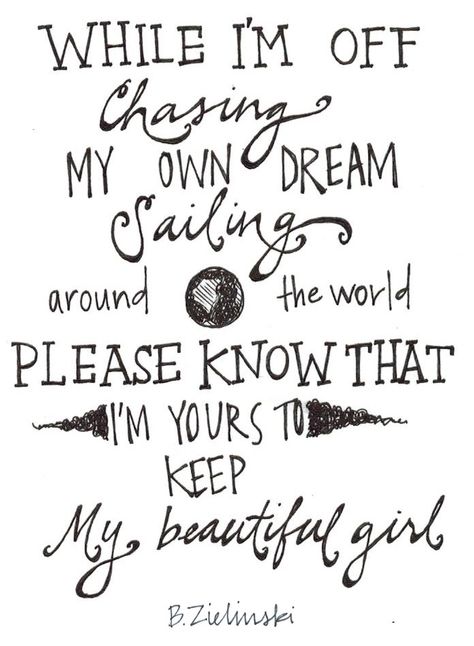 WHILE I'M OFF
Chasing
MY OWN DREAM
Sailing
around the world
PLEASE KNOW THAT
I'M YOURS TO
KEEP
My beautiful girl
B. Zielinski